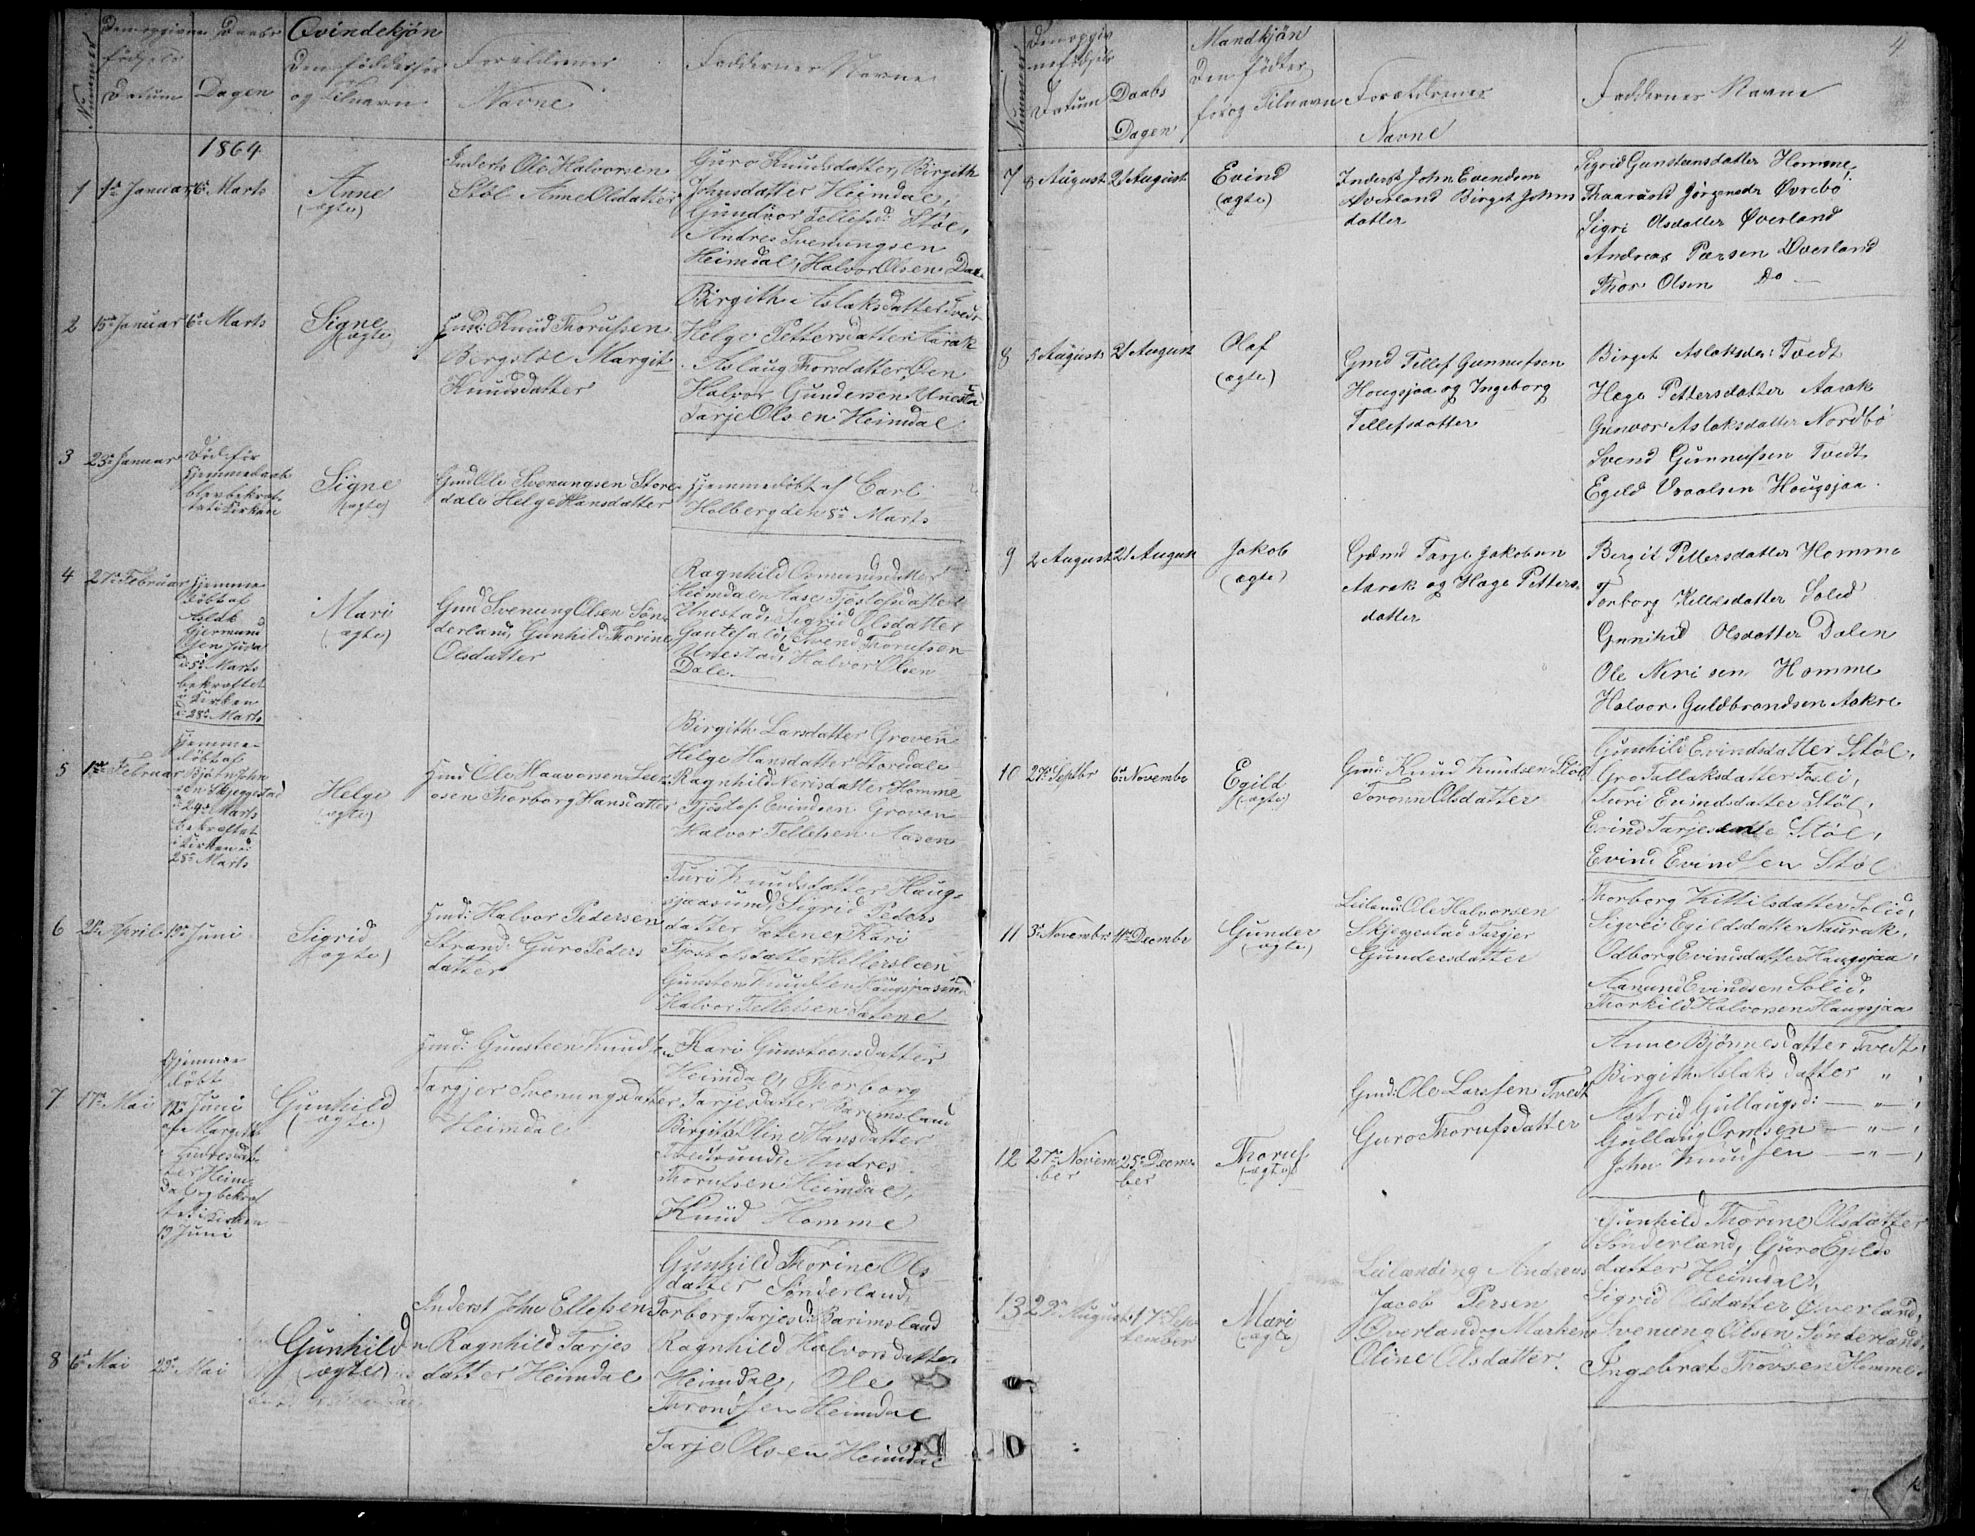 Nummer
Den opgivne
fødsels
Datum
Daabs
Dagen
Qvindekjön
Den földer for
og tilnavn
Forældrenes
Navne
Faddernes Navne
1864
1
1ste Januar
6te Marts
Anne
(ægte)
Inderst Ole Halvorsen
Stöl Anne Olsdatter
Guro Knudsdatter, Birgith
Johnsdatter Heimdal,
Gundvor Tellefsd: Stöl,
Andres Svenungsen
Heimdal, Halvor Olsen Dale
2
15de Januar
6te Marts
Signe
(ægte)
Gmd: Knud Thorufsen
Bergstöl Margit
Knudsdatter
Birgithe Aslaksdatter Tvedt
Helge Pettersdatter Aarak
Aslaug Thorsdatter Öien
Halvor Gundersen Unestad
Tarje Olsen Heimdal
3
23de Januar
Död för
hjemmedaab
blev bekræf
tet i Kirken
Signe
(ægte)
Gmd Ole Svenungsen Store
dale Helge Hansdatter
Hjemmedöbt af Carl
Holberg den 8de Marts
4
27de Februar
Hjemme
döbt af
Aslak
Gjermund
sen Juva
d: 5te Marts
bekræftet
i Kirken
d: 28de Marts
Mari
(ægte)
Gmd Svenung Olsen Sön
derland, Gunhild Thorine
Olsdatter
Ragnhild Osmundsdatter
Heimdal Aase Tjostofsdatter
Unestad, Sigrid Olsdatter
Gautefald, Svend Thorufsen
Unestad, Halvor Olsen
Dale
5
1ste Februar
Hjemme-
döbt af
Björn John
sen Skjeggestad
d: 24de Marts
bekræftet
i Kirken d:
28de Marts
Helge
(ægte)
Gmd Ole Haavorsen Leer
osen Thorborg Hansdatter
Birgith Larsdatter Groven
Helge Hansdatter Stordale
Ragnhild Nerisdatter Homme
Tjostof Evindsen Groven
Halvor Tellefsen Aasen
6
2den April
19de Juni
Sigrid
(ægte)
Gmd: Halvor Pedersen
Strand: Guro Peders
datter
Turi Knudsdatter Haug
sjaasund, Sigrid Peders
datter Sætene, Kari
Tjostofsdatter Kellersleen
Gunsten Knudsen Haugsjaasund
Halvor Tellefsen Sætene
7
17de Mai
Hjemme
döbt
12te Juni
af Margith
Andresdat
ter Heim
dal og bekræf
tet i Kirken
19 Juni
Gunhild
(ægte)
Gmd: Gunsteen Knudsen
Targjer Svenungsdatter
Heimdal
Kari Gunsteensdatter
Heimdal, Thorborg
Tarjesdatter Barimsland
Birgith Oline Hansdatter
Tvedsund, Andres
Thorufsen Heimdal,
Knud Homme
8
6te Mai
29de Mai
Gunhild
(ægte)
Inderst John Ellefsen
Ragnhild Tarjes
datter Heimdal
Gunhild Thorine Ols
datter Sönderland,
Torborg Tarjesd: Barimsland
Ragnhild Halvorsdatter
Heimdal, Ole
Throndsen Heimdal
Tarje Olsen Heimdal
4
Nummer
Den opgiv
ne fødsels
Datum
Daabs
Dagen
Mandkjön
Den födtes
for og Tilnavn
Forældrenes
Navne
Faddernes Navne
7
8 August
21 August
Evind
(ægte)
Inderst John Evendsen
Øverland Birget Johns
datter
Sigrid Gunstensdatter Homme,
Thaaruld Jörgensdr Øvrebö
Sigri Olsdatter Øverland
Andreas Pærsen Øverland
Thor Olsen Do
8
5 August
21 August
Olaf
(ægte)
Gmd Tellef Gunnufsen
Hougsjaa og Ingeborg
Tellefsdatter
Birget Aslaksdr: Tvedt
Hæge Pettersdatter Aarak
Gunvor Aslaksdatter Nordbö
Svend Gunnufsen Tvedt
Egeld Vraalsen Hougsjaa.
9
2 August
21 August
Jakob
(ægte)
Grmd Tarje Jakobsen
Aarak og Hæge Petters
datter
Bergit Pettersdatter Homme
Torborg Killelsdatter Solid
Gunild Olsdatter Dalen
Ole Nerisen Homme
Halvor Guldbrandsen Aakre
10
27de Septbr
6te Novembr
Egild
(ægte)
Gmd: Knud Knudsen Stöl
Toronn Olsdatter
Gunhild Evindsdatter Stöl,
Gro Tallaksdatter Fosli,
Turi Evindsdatter Stöl,
Evind Tarjesen Stöl,
Evind Evindsen Stöl
11
3de Novembr:
11te Decembr
Gunder
(ægte)
Leilænd: Ole Halvorsen
Skjeggestad Targjer
Gundersdatter
Thorborg Kittilsdatter Solid,
Sigrei Egildsdatter Naurak,
Odborg Evindsdatter Haugsjaa,
Aanund Evindsen Solid,
Thorkild Halvorsen Haugsjaa
12
27de Novem
ber
25de Decem
ber
Thoruf
(ægte)
Gmd: Ole Larssen Tvedt
Guro Thorufsdatter
Anne Björnesdatter Tvedt,
Birgith Aslaksdatter " ,
Astrid Gullaugsd: — " — ,
Gullaug Ormsen — " — ,
John Knudsen — " — ,
13
29de August
17de Sep
tember
Mari
(ægte)
Leilænding Andreas
Jacob Persen
Øverland og Maren
Oline Olsdatter.
Gunhild Thorine Olsdatter
Sönderland, Guro Egilds
datter Heimdal,
Sigrid Olsdatter Øverland,
Svenung Olsen Sönderland,
Ingebret Thorsen Homme.